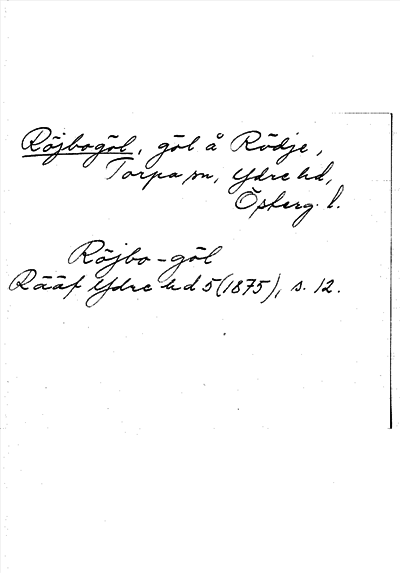 Röjbogöl, göl å Rödje,
Torpa sn, Ydre hd,
Österg. l.
Röjbo-göl
Rääf Ydre hd 5 (1875), s. 12.